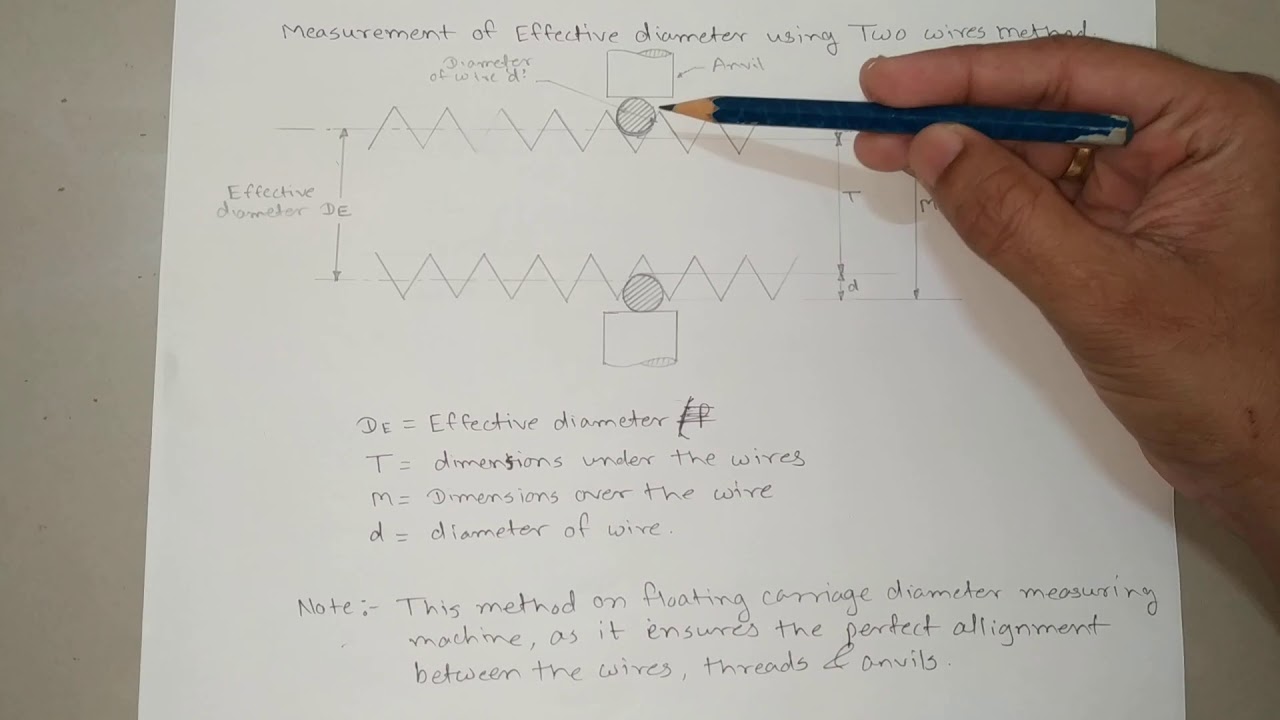 Measurement of Effective diameter using Two wires method.
Diameter
of wire 'd'
Anvil
Effective
diameter DE
T
M
d
DE = Effective diameter
T = dimensions under the wires
M = Dimensions over the wire
d = diameter of wire.
Note :- This method on floating carriage diameter measuring
machine, as it ensures the perfect allignment
between the wires, threads & anvils.